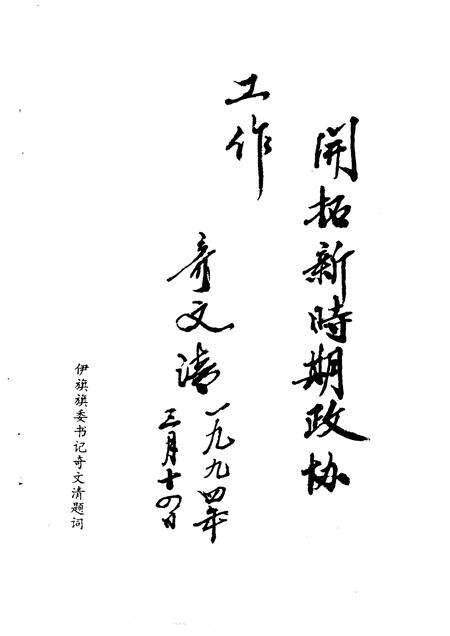 開拓新時期政协
工作
奇文清
一九九四年
三月十四日
伊旗旗委书记奇文清题词